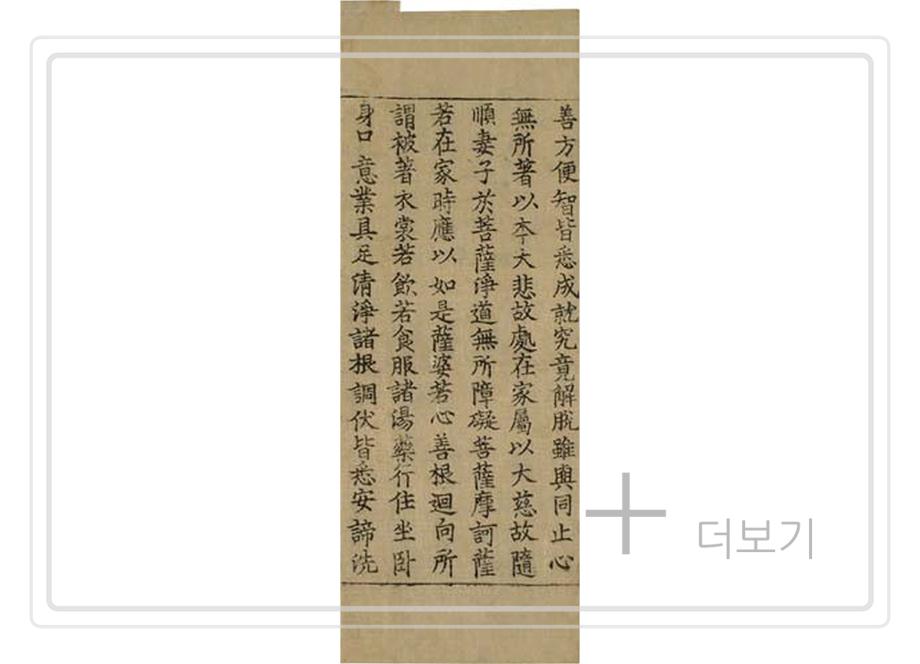 善方便智皆悉成就究竟解脫雖與同止心
無所著以本大悲故處在家屬以大慈故隨
順妻子於菩薩淨道無所障礙菩薩摩訶薩
若在家時應以如是薩婆若心善根迴向所
謂被著衣裳若飲若食服諸湯藥行住坐臥
身口意業具足清淨諸根調伏皆悉安諦洗
더보기